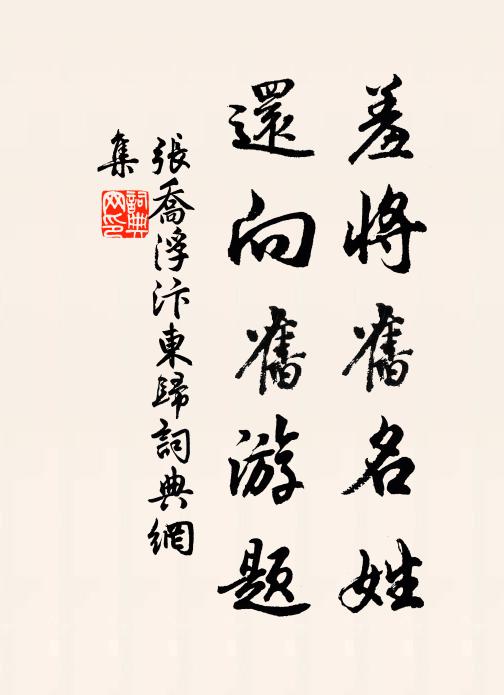 羞將舊名姓
還向舊游題
張喬浮汴東歸詞典網
集
詞典网印